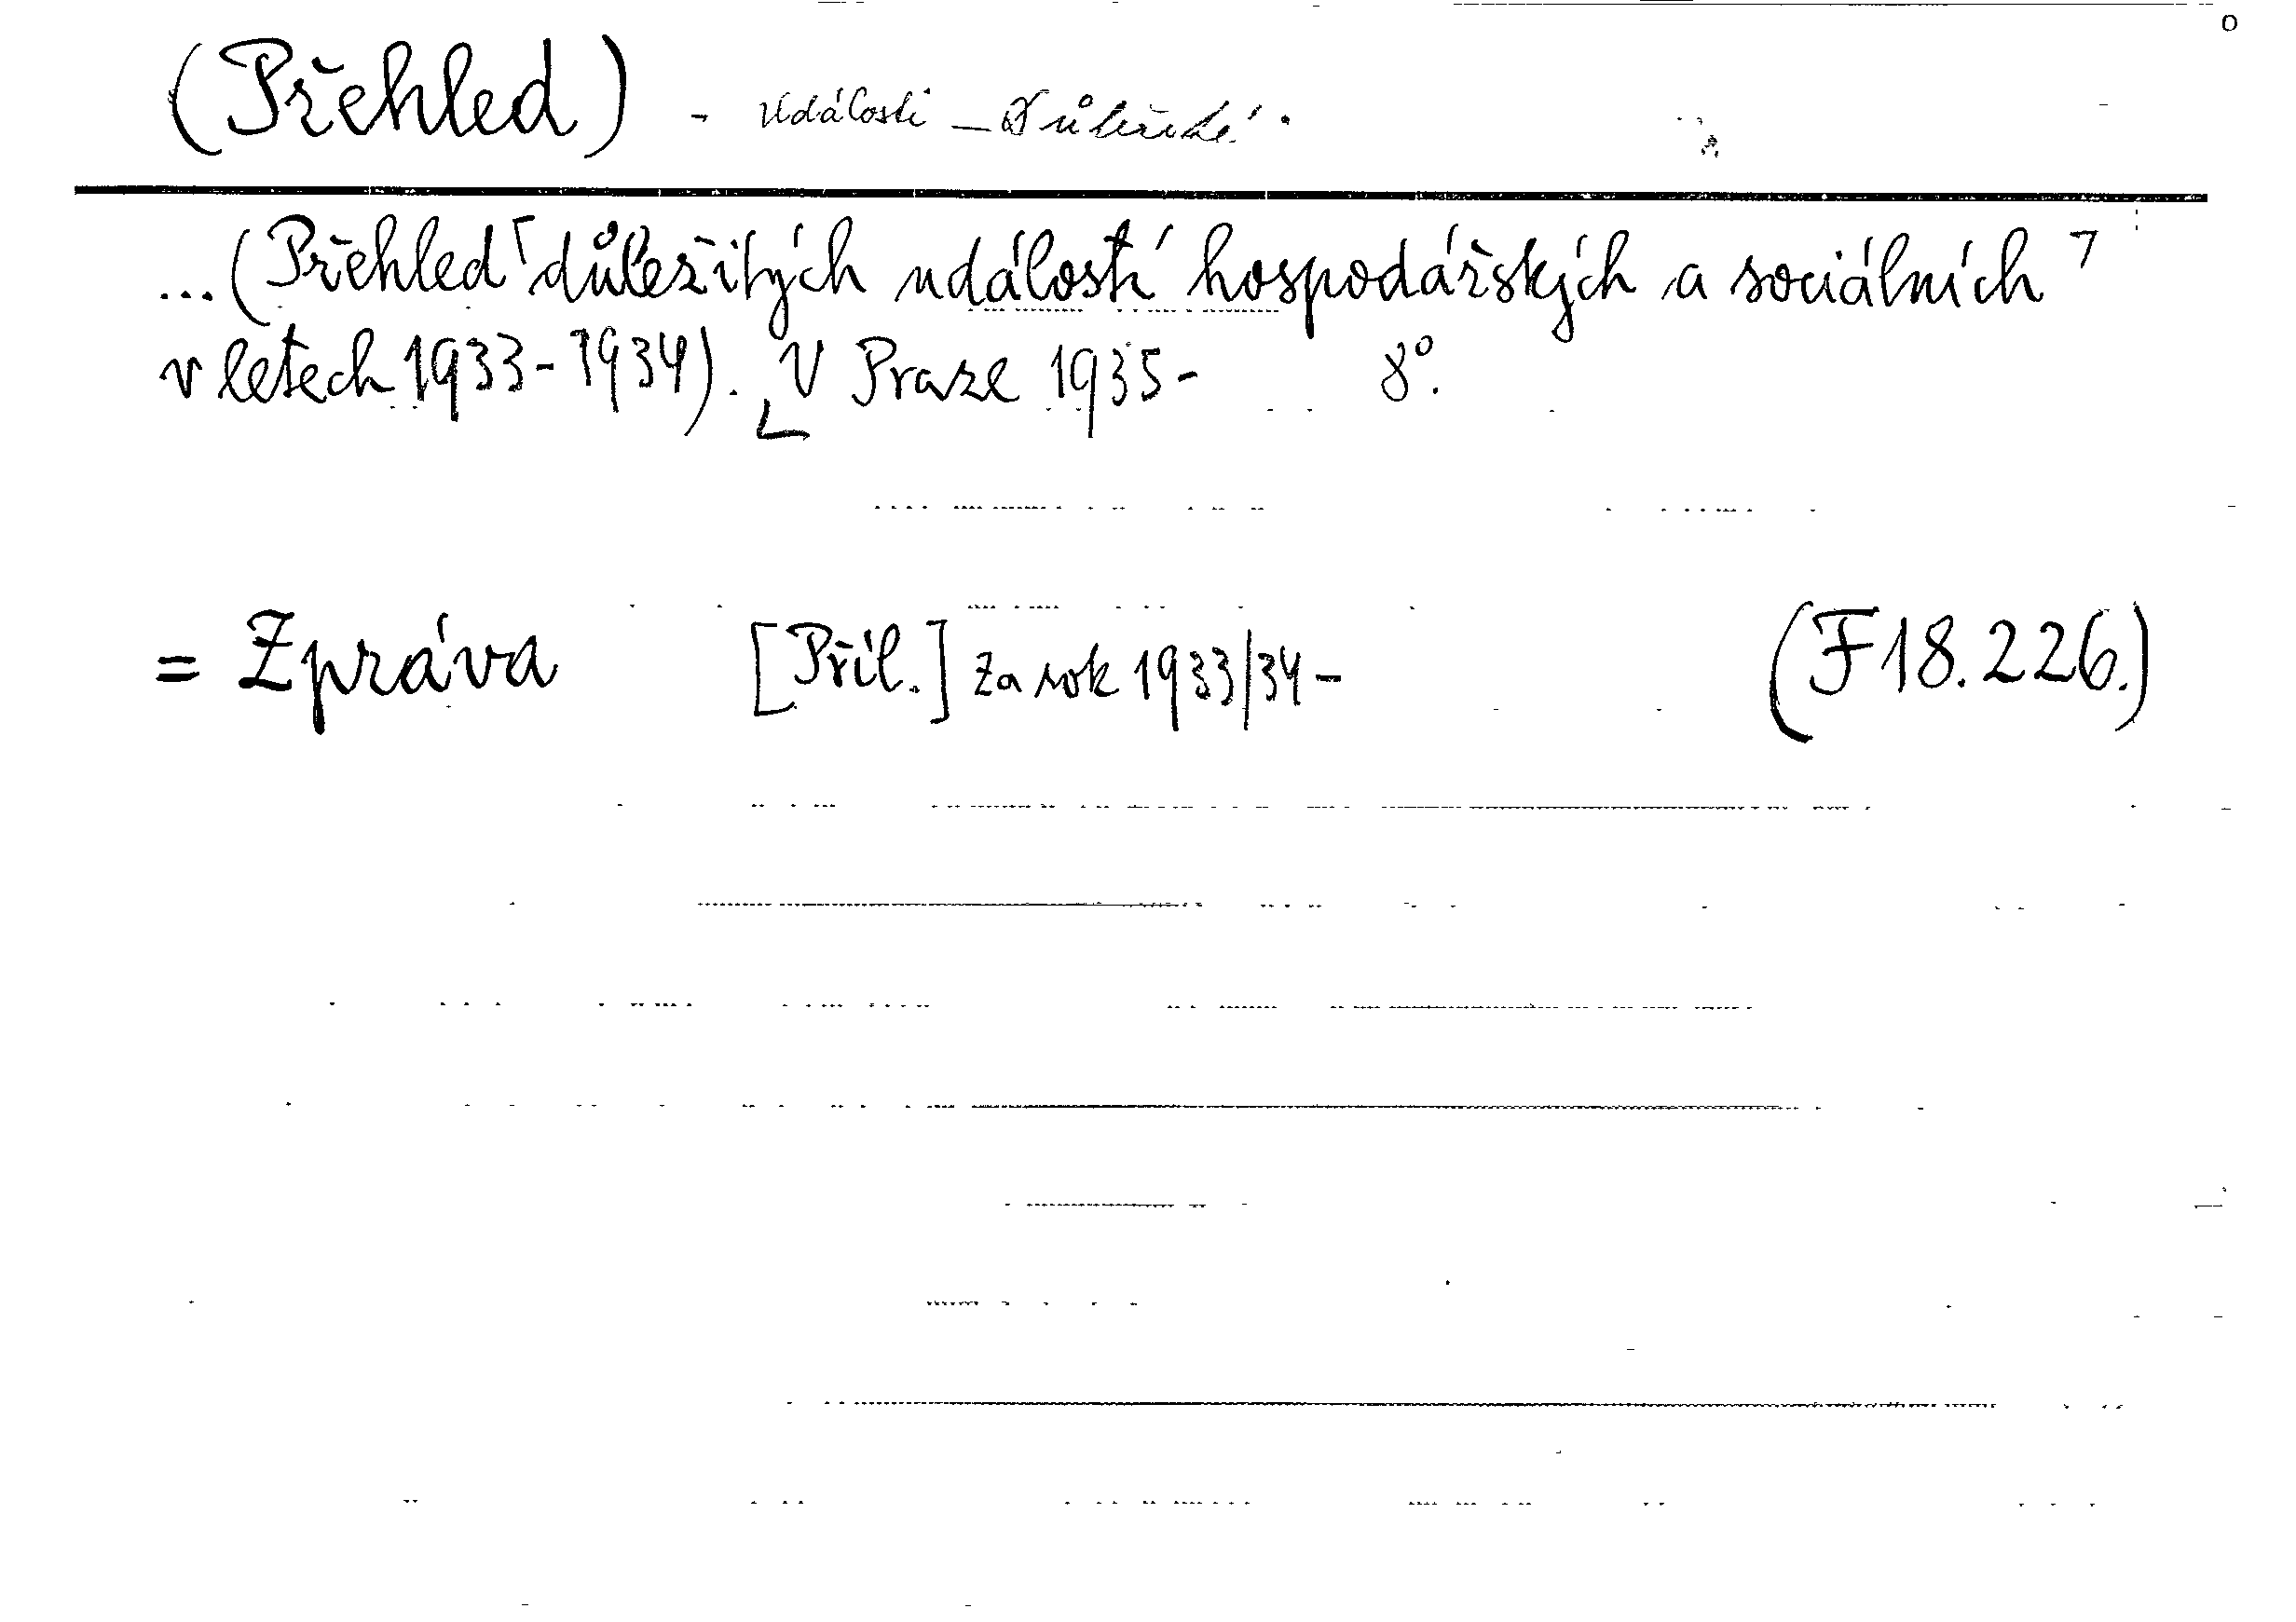 (Přehled) - Události - Důležité.
...(Přehled ⌈důležitých událostí hospodářských a sociálních⌉
v letech 1933-1934). ⌊V Praze 1935- 8°.
= Zpráva [Příl.] za rok 1933/34- (F18.226.)